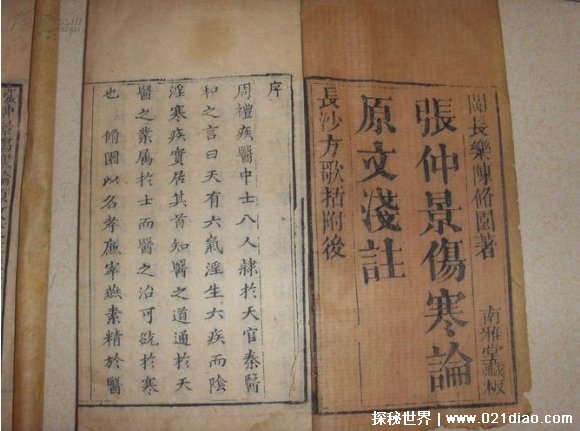 閩長樂陳脩園著
張仲景傷寒論
原文淺註
長沙方歌括附後
南雅堂藏板
序
周禮疾醫中士八人隸於天官秦醫
和之言曰天有六氣淫生六疾而陰
淫寒疾實居其首知醫之道通於天
醫之業属於士而醫之治可統於寒
也 脩園以名孝廉宰燕素精於醫
張仲景傷寒論原文
探秘世界 | www.021diao.com